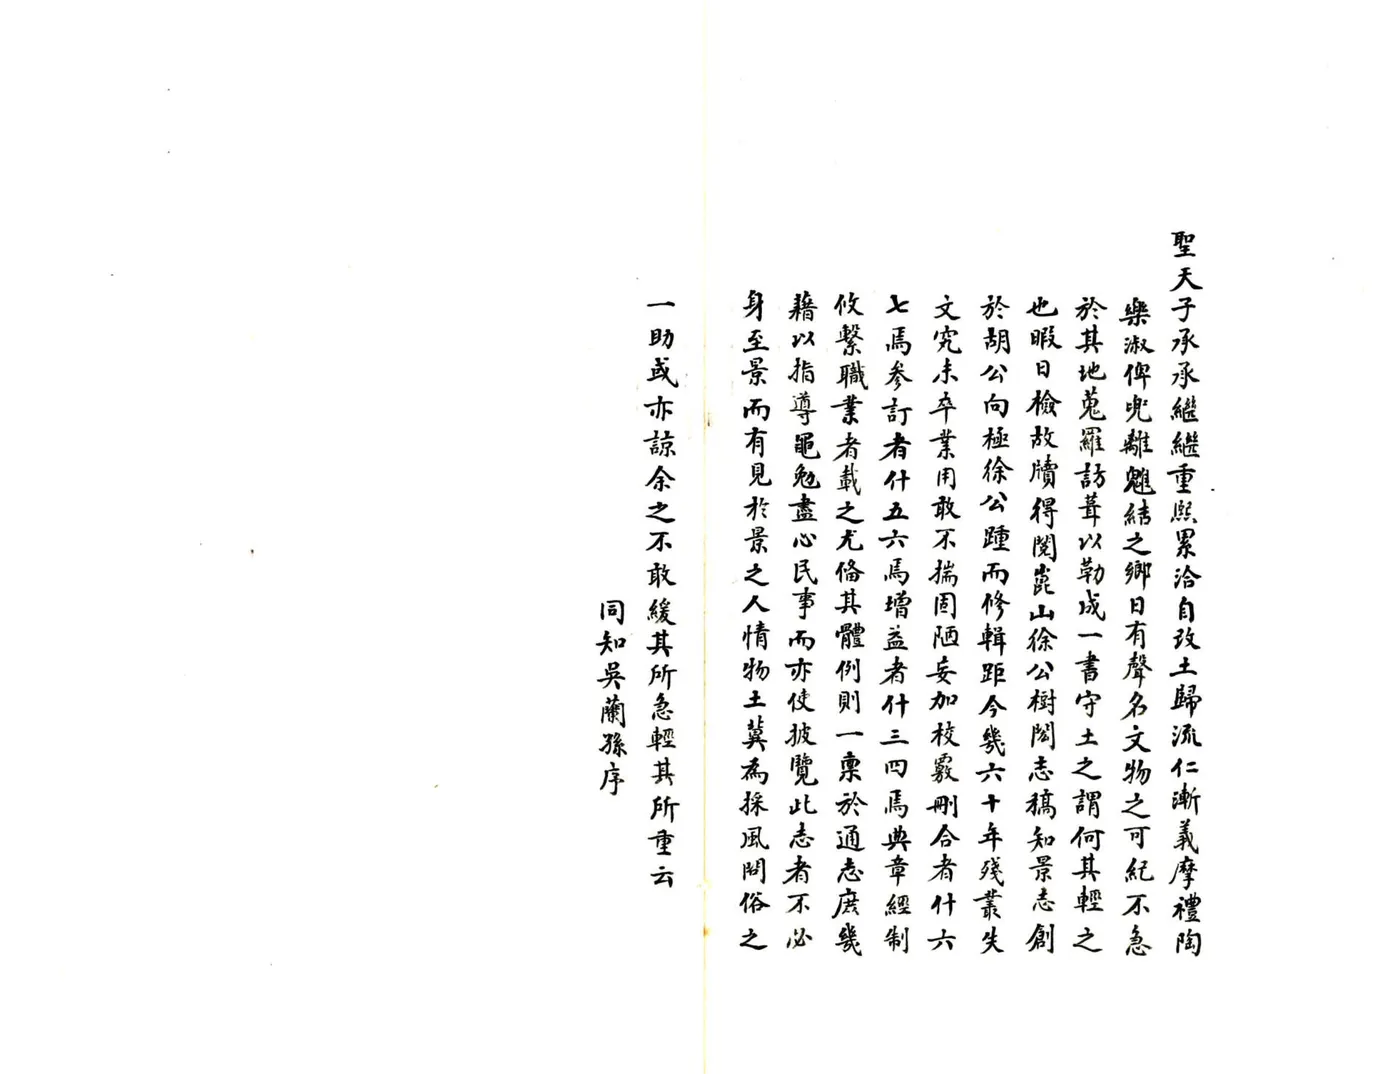 聖天子承承繼繼重熙累洽自改土歸流仁漸義摩禮陶
樂淑俾兜離魋結之鄉日有聲名文物之可紀不急
於其地蒐羅訪葺以勒成一書守土之謂何其輕之
也暇日檢故牘得閱崑山徐公樹閎志稿知景志創
於胡公向極徐公踵而修輯距今幾六十年殘叢失
文究未卒業用敢不揣固陋妄加校覈刪合者什六
七焉參訂者什五六焉增益者什三四焉典章經制
攸繫職業者載之尤備其體例則一稟於通志庶幾
藉以指導黽勉盡心民事而亦使披覽此志者不必
身至景而有見於景之人情物土冀為採風問俗之
一助或亦諒余之不敢緩其所急輕其所重云
同知吳蘭孫序